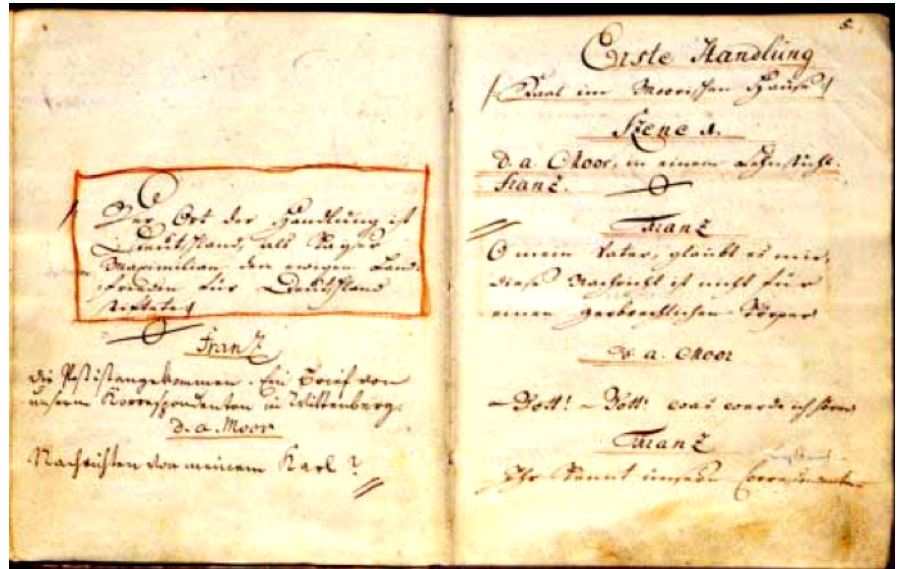 Der Ort der Handlung ist
Deutschland, als Kayser
Maximilian, den ewigen Land-
frieden für Deutschland
stiftete
Franz
die Post ist angekommen. Ein Brief von
unserm Korrespondenten in Wittenberg.
D. a. Moor
Nachrichten von meinem Karl?
5.
Erste Handlung
Saal im Moorischen Hause
Szene 1.
D. a. Moor, in einem Lehnstuhl.
Franz.
Franz
O mein Vater, glaubt es mir,
diese Nachricht ist nicht für
einen zerbrechlichen Körper
D. a. Moor
– Gott! – Gott! was werde ich hören
Franz
Ihr kennt unsern Correspondenten